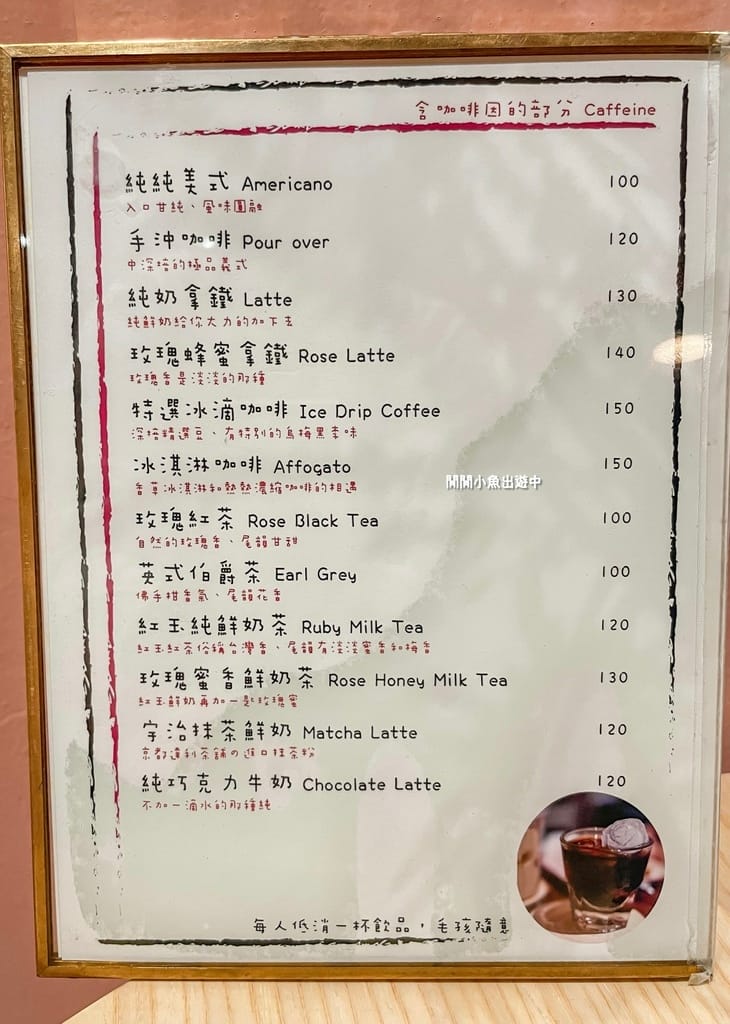 含咖啡因的部分 Caffeine
純純美式 Americano 100
入口甘純、風味圓融
手沖咖啡 Pour over 120
中深焙的極品義式
純奶拿鐵 Latte 130
純鮮奶給你大力的加下去
玫瑰蜂蜜拿鐵 Rose Latte 140
玫瑰香是淡淡的那種
特選冰滴咖啡 Ice Drip Coffee 150
深焙精選豆、有特別的烏梅黑李味
冰淇淋咖啡 Affogato 150
香草冰淇淋和熱熱濃縮咖啡的相遇
閒閒小魚出遊中
玫瑰紅茶 Rose Black Tea 100
自然的玫瑰香、尾韻甘甜
英式伯爵茶 Earl Grey 100
佛手柑香氣、尾韻花香
紅玉純鮮奶茶 Ruby Milk Tea 120
紅玉紅茶俗稱台灣香、尾韻有淡淡蜜香和梅香
玫瑰蜜香鮮奶茶 Rose Honey Milk Tea 130
紅玉鮮奶再加一匙玫瑰蜜
宇治抹茶鮮奶 Matcha Latte 120
京都達利茶舖の進口抹茶粉
純巧克力牛奶 Chocolate Latte 120
不加一滴水的那種純
每人低消一杯飲品，毛孩隨意